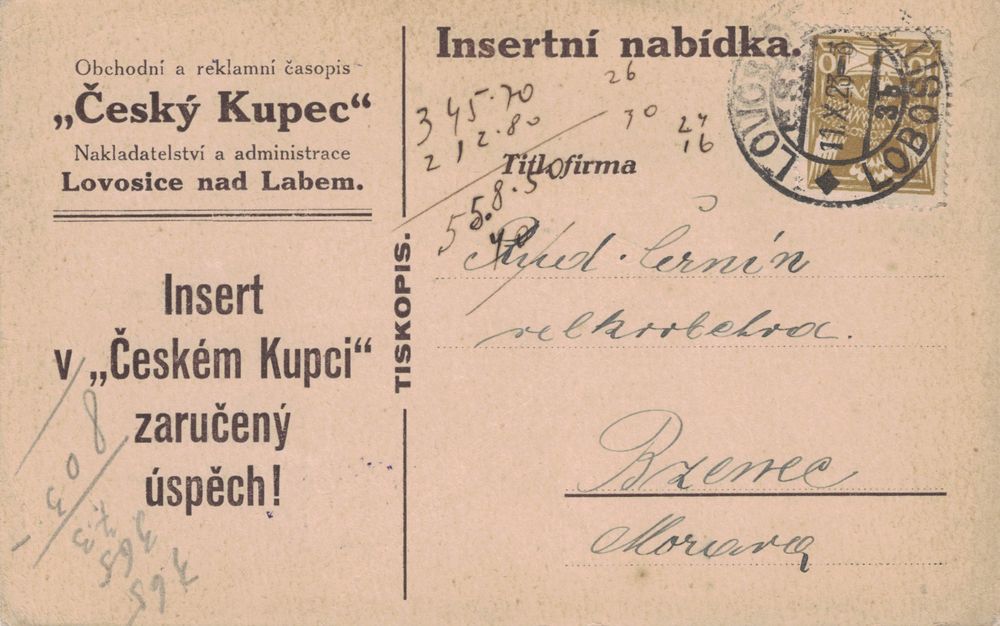 Obchodní a reklamní časopis
„Český Kupec“
Nakladatelství a administrace
Lovosice nad Labem.
Insert
v „Českém Kupci“
zaručený
úspěch!
TISKOPIS.
Insertní nabídka.
26
345.70
212.80
30
24
16
Titl. firma
558.50
40
Rud. Černín
velkoobchod.
Bzenec
Morava
LOVOSICE
11.X.23
LOBOSI
80
365
765